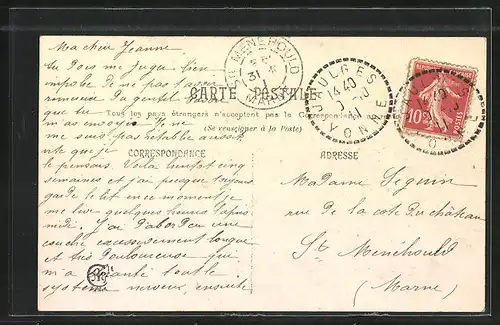 Ma chère Jeanne
Tu dois me juger bien
impolie de ne pas t'avoir
remerciée du gentil
que tu
m'as envoyé. Je ne
me suis pas rétablie aussi
vite que je
le pensais. Voilà bientôt cinq
semaines et j'ai presque toujours
gardé le lit en ce moment je
me lève quelques heures l'après
midi. J'ai d'abord eu une
couche excessivement longue
et très douloureuse qui
m'a ébranlé tout le
système nerveux, ensuite
CARTE POSTALE
Tous les pays étrangers n'acceptent pas la Correspondance
(Se renseigner à la Poste)
CORRESPONDANCE
ADRESSE
STE MENEHOULD
MARNE
YONNE
10
Madame Seguin
rue de la côte du château
Ste Menéhould
(Marne)